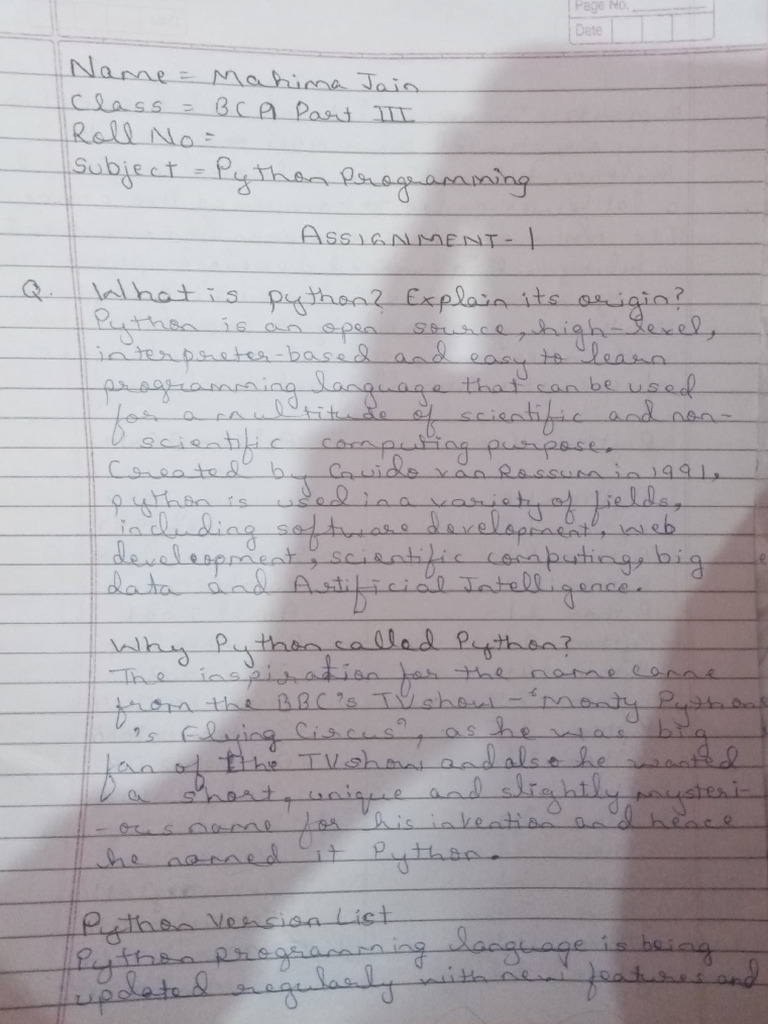 Page No.
Date
Name = Mahima Jain
Class = BCA Part III
Roll No =
Subject = Python Programming
ASSIGNMENT-1
Q. What is python? Explain its origin?
Python is an open source, high-level,
interpreter-based and easy to learn
programming language that can be used
for a multitude of scientific and non-
scientific computing purpose.
Created by Guido van Rossum in 1991,
python is used in a variety of fields,
including software development, web
development, scientific computing, big
data and Artificial Intelligence.
Why Python called Python?
The inspiration for the name came
from the BBC's TV show - "Monty Python
's Flying Circus", as he was big
fan of the TV show and also he wanted
a short, unique and slightly mysteri-
-ous name for his invention and hence
he named it Python.
Python Version List
Python programming language is being
updated regularly with new features and